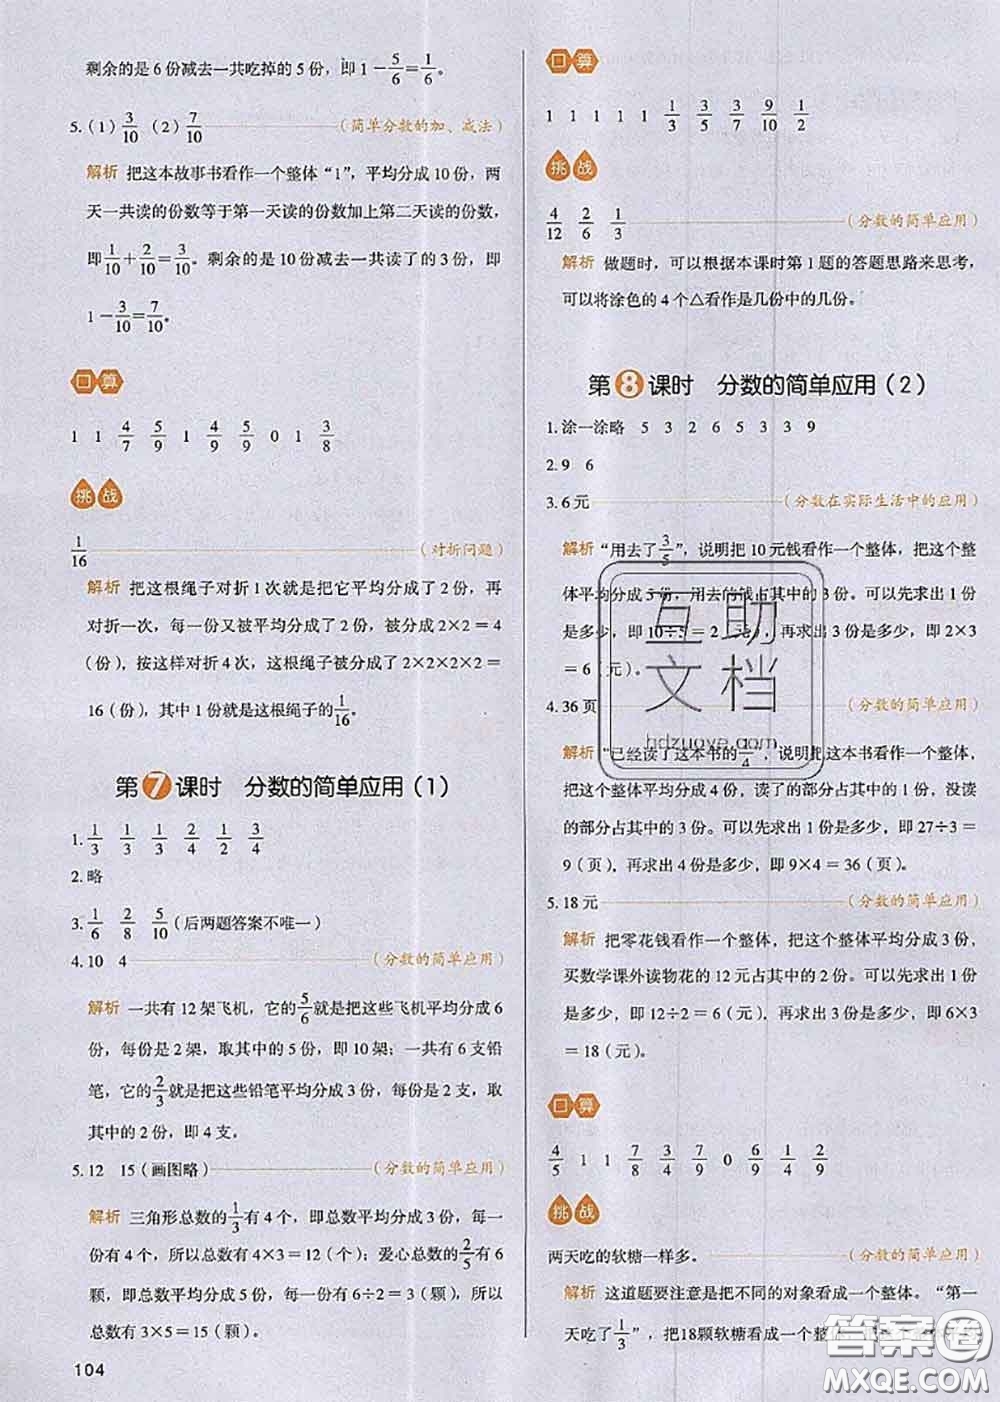 剩余的是6份减去一共吃掉的5份，即1－5/6＝1/6。
5.(1) 3/10 (2) 7/10 (简单分数的加、减法)
解析 把这本故事书看作一个整体“1”，平均分成10份，两
天一共读的份数等于第一天读的份数加上第二天读的份数，
即1/10＋2/10＝3/10。剩余的是10份减去一共读了的3份，即
1－3/10＝7/10。
口算
1 1 4/7 5/9 1 4/9 5/9 0 1 3/8
挑战
1/16 (对折问题)
解析 把这根绳子对折1次就是把它平均分成了2份，再
对折一次，每一份又被平均分成了2份，被分成2×2＝4
(份)，按这样对折4次，这根绳子被分成了2×2×2×2＝
16(份)，其中1份就是这根绳子的1/16。
第7课时 分数的简单应用(1)
1. 1/3 1/3 1/3 2/4 1/2 3/4
2.略
3. 1/6 2/8 5/10 (后两题答案不唯一)
4.10 4 (分数的简单应用)
解析 一共有12架飞机，它的5/6就是把这些飞机平均分成6
份，每份是2架，取其中的5份，即10架；一共有6支铅
笔，它的2/3就是把这些铅笔平均分成3份，每份是2支，取
其中的2份，即4支。
5.12 15(画图略) (分数的简单应用)
解析 三角形总数的1/3有4个，即总数平均分成3份，每一
份有4个，所以总数有4×3＝12(个)；爱心总数的2/5有6
颗，即总数平均分成5份，每一份有6÷2＝3(颗)，所以
总数有3×5＝15(颗)。
104
口算
1 1 1 1 1 1/3 3/5 3/7 9/10 1/2
挑战
4/12 2/6 1/3 (分数的简单应用)
解析 做题时，可以根据本课时第1题的答题思路来思考，
可以将涂色的4个△看作是几份中的几份。
第8课时 分数的简单应用(2)
1.涂一涂略 5 3 2 6 5 3 3 9
2.9 6
3.6元 (分数在实际生活中的应用)
解析 “用去了3/5”，说明把10元钱看作一个整体，把这个整
体平均分成5份，用去的钱占其中的3份。可以先求出1份
是多少，即10÷5＝2(元)，再求出3份是多少，即2×3
＝6(元)。
4.36页 (分数的简单应用)
解析 “已经读了这本书的1/4”，说明把这本书看作一个整体，
把这个整体平均分成4份，读了的部分占其中的1份，没读
的部分占其中的3份。可以先求出1份是多少，即27÷3＝
9(页)，再求出4份是多少，即9×4＝36(页)。
5.18元 (分数的简单应用)
解析 把零花钱看作一个整体，把这个整体平均分成3份，
买数学课外读物花的12元占其中的2份。可以先求出1份
是多少，即12÷2＝6(元)，再求出3份是多少，即6×3
＝18(元)。
口算
4/5 1 1 7/8 3/4 7/9 0 6/9 1/4 2/9
挑战
两天吃的软糖一样多。 (分数的简单应用)
解析 这道题要注意是把不同的对象看成一个整体。“第一
天吃了1/3”，把18颗软糖看成一个整
互助
文档
hdzuoye.com
答案圈
MXQE.COM